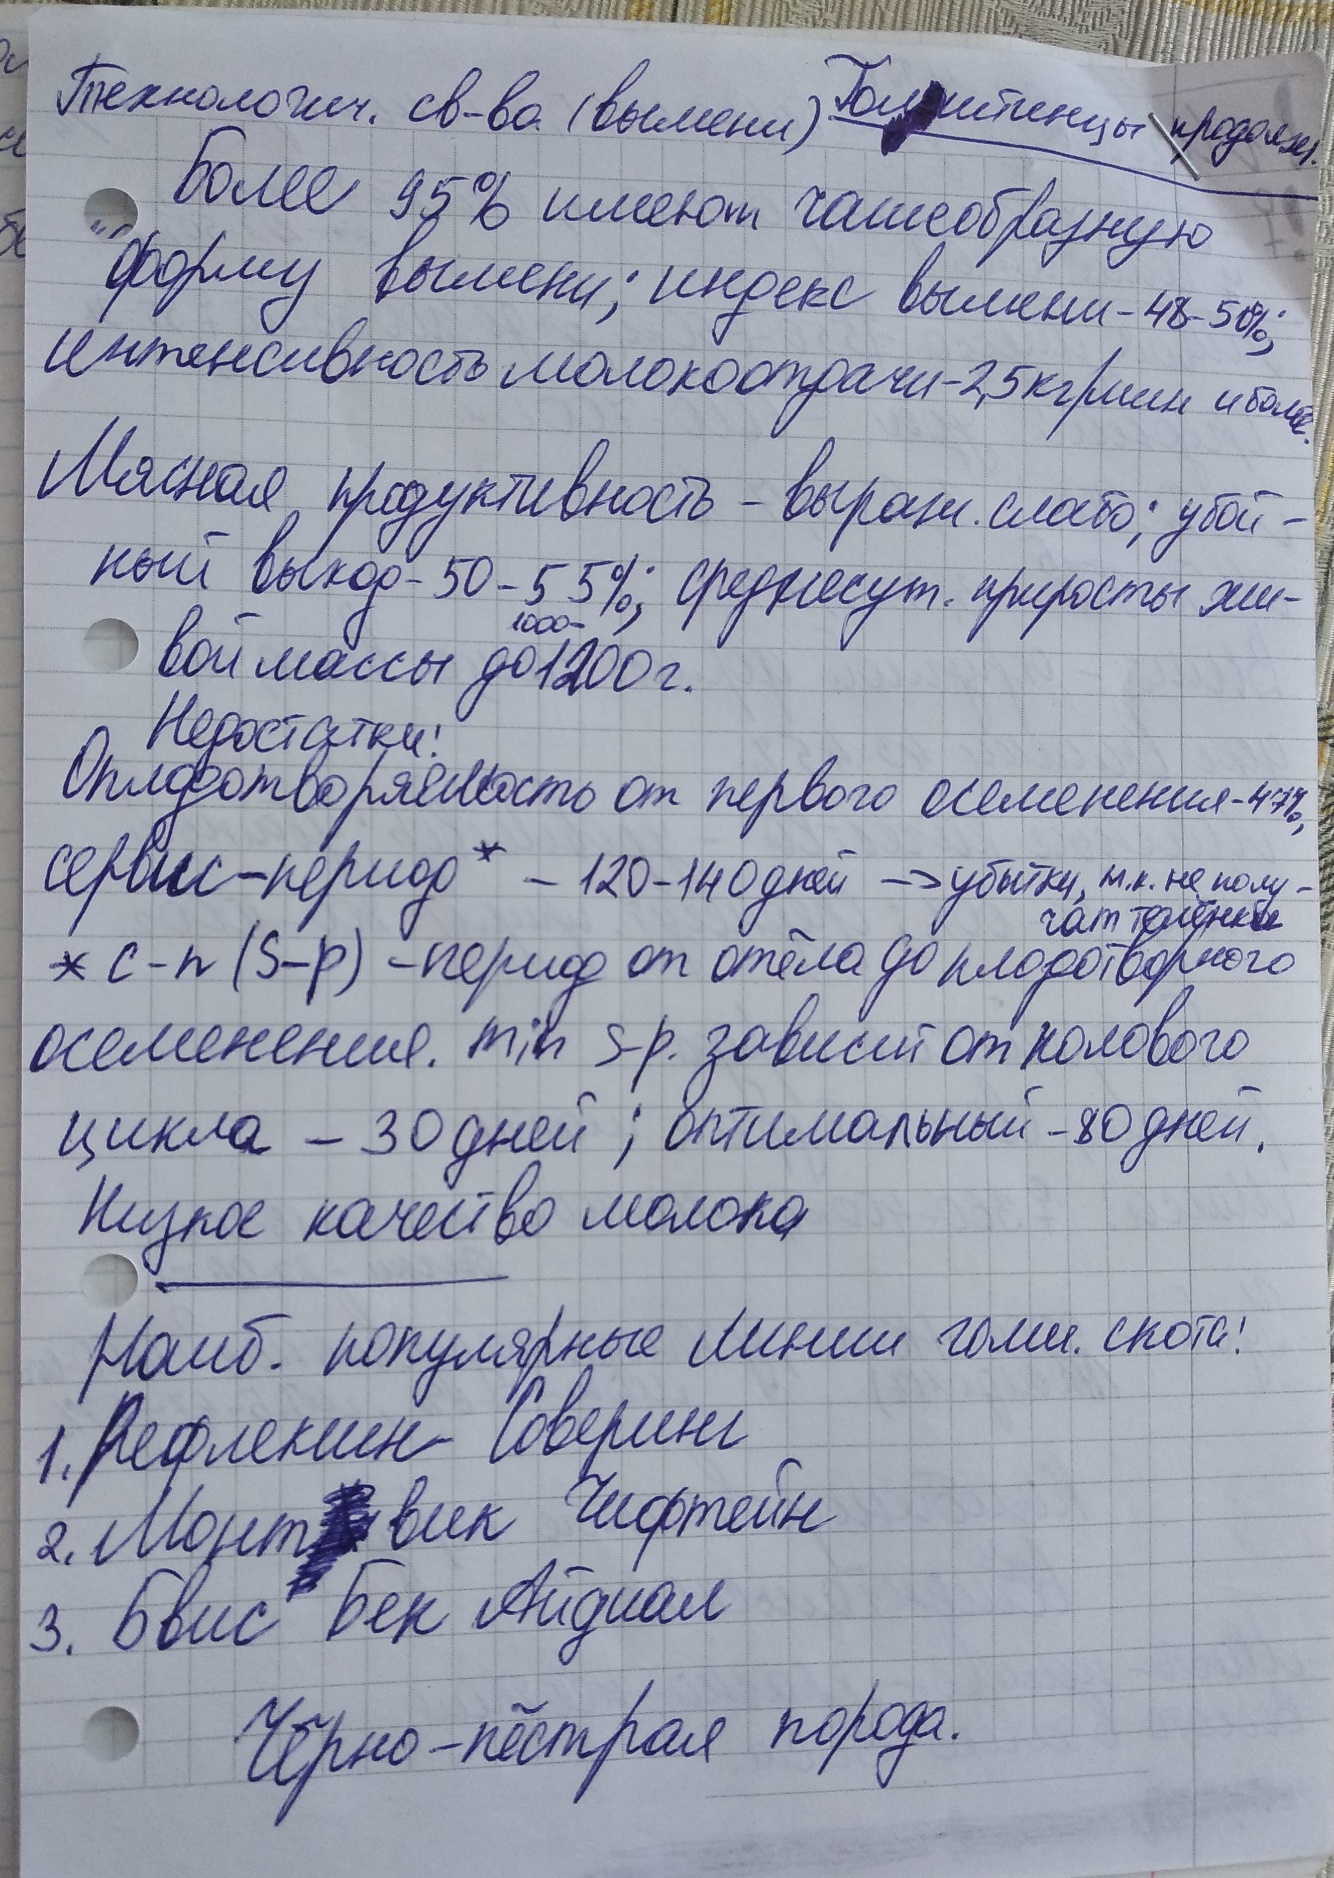 Технологич. св-ва (вымени) Голштинцы продолж.
Более 95% имеют чашеобразную
форму вымени; индекс вымени - 48-50%;
Интенсивность молокоотдачи - 2,5 кг/мин и более.
Мясная продуктивность - выраж. слабо; убой-
ный выход - 50-55%; среднесут. приросты жи-
вой массы до 1000-1200 г.
Недостатки:
Оплодотворяемость от первого осеменения - 47%,
сервис-период* - 120-140 дней -> убытки, т.к. не полу-
чат телёнка
* с-п (S-p) - период от отёла до плодотворного
осеменения. min s-p. зависит от полового
цикла - 30 дней; оптимальный - 80 дней.
Низкое качество молока
Наиб. популярные линии голш. скота:
1. Рефлекшн Соверинг
2. Монтвик Чифтейн
3. Бвис Бек Айдиал
Чёрно-пёстрая порода.